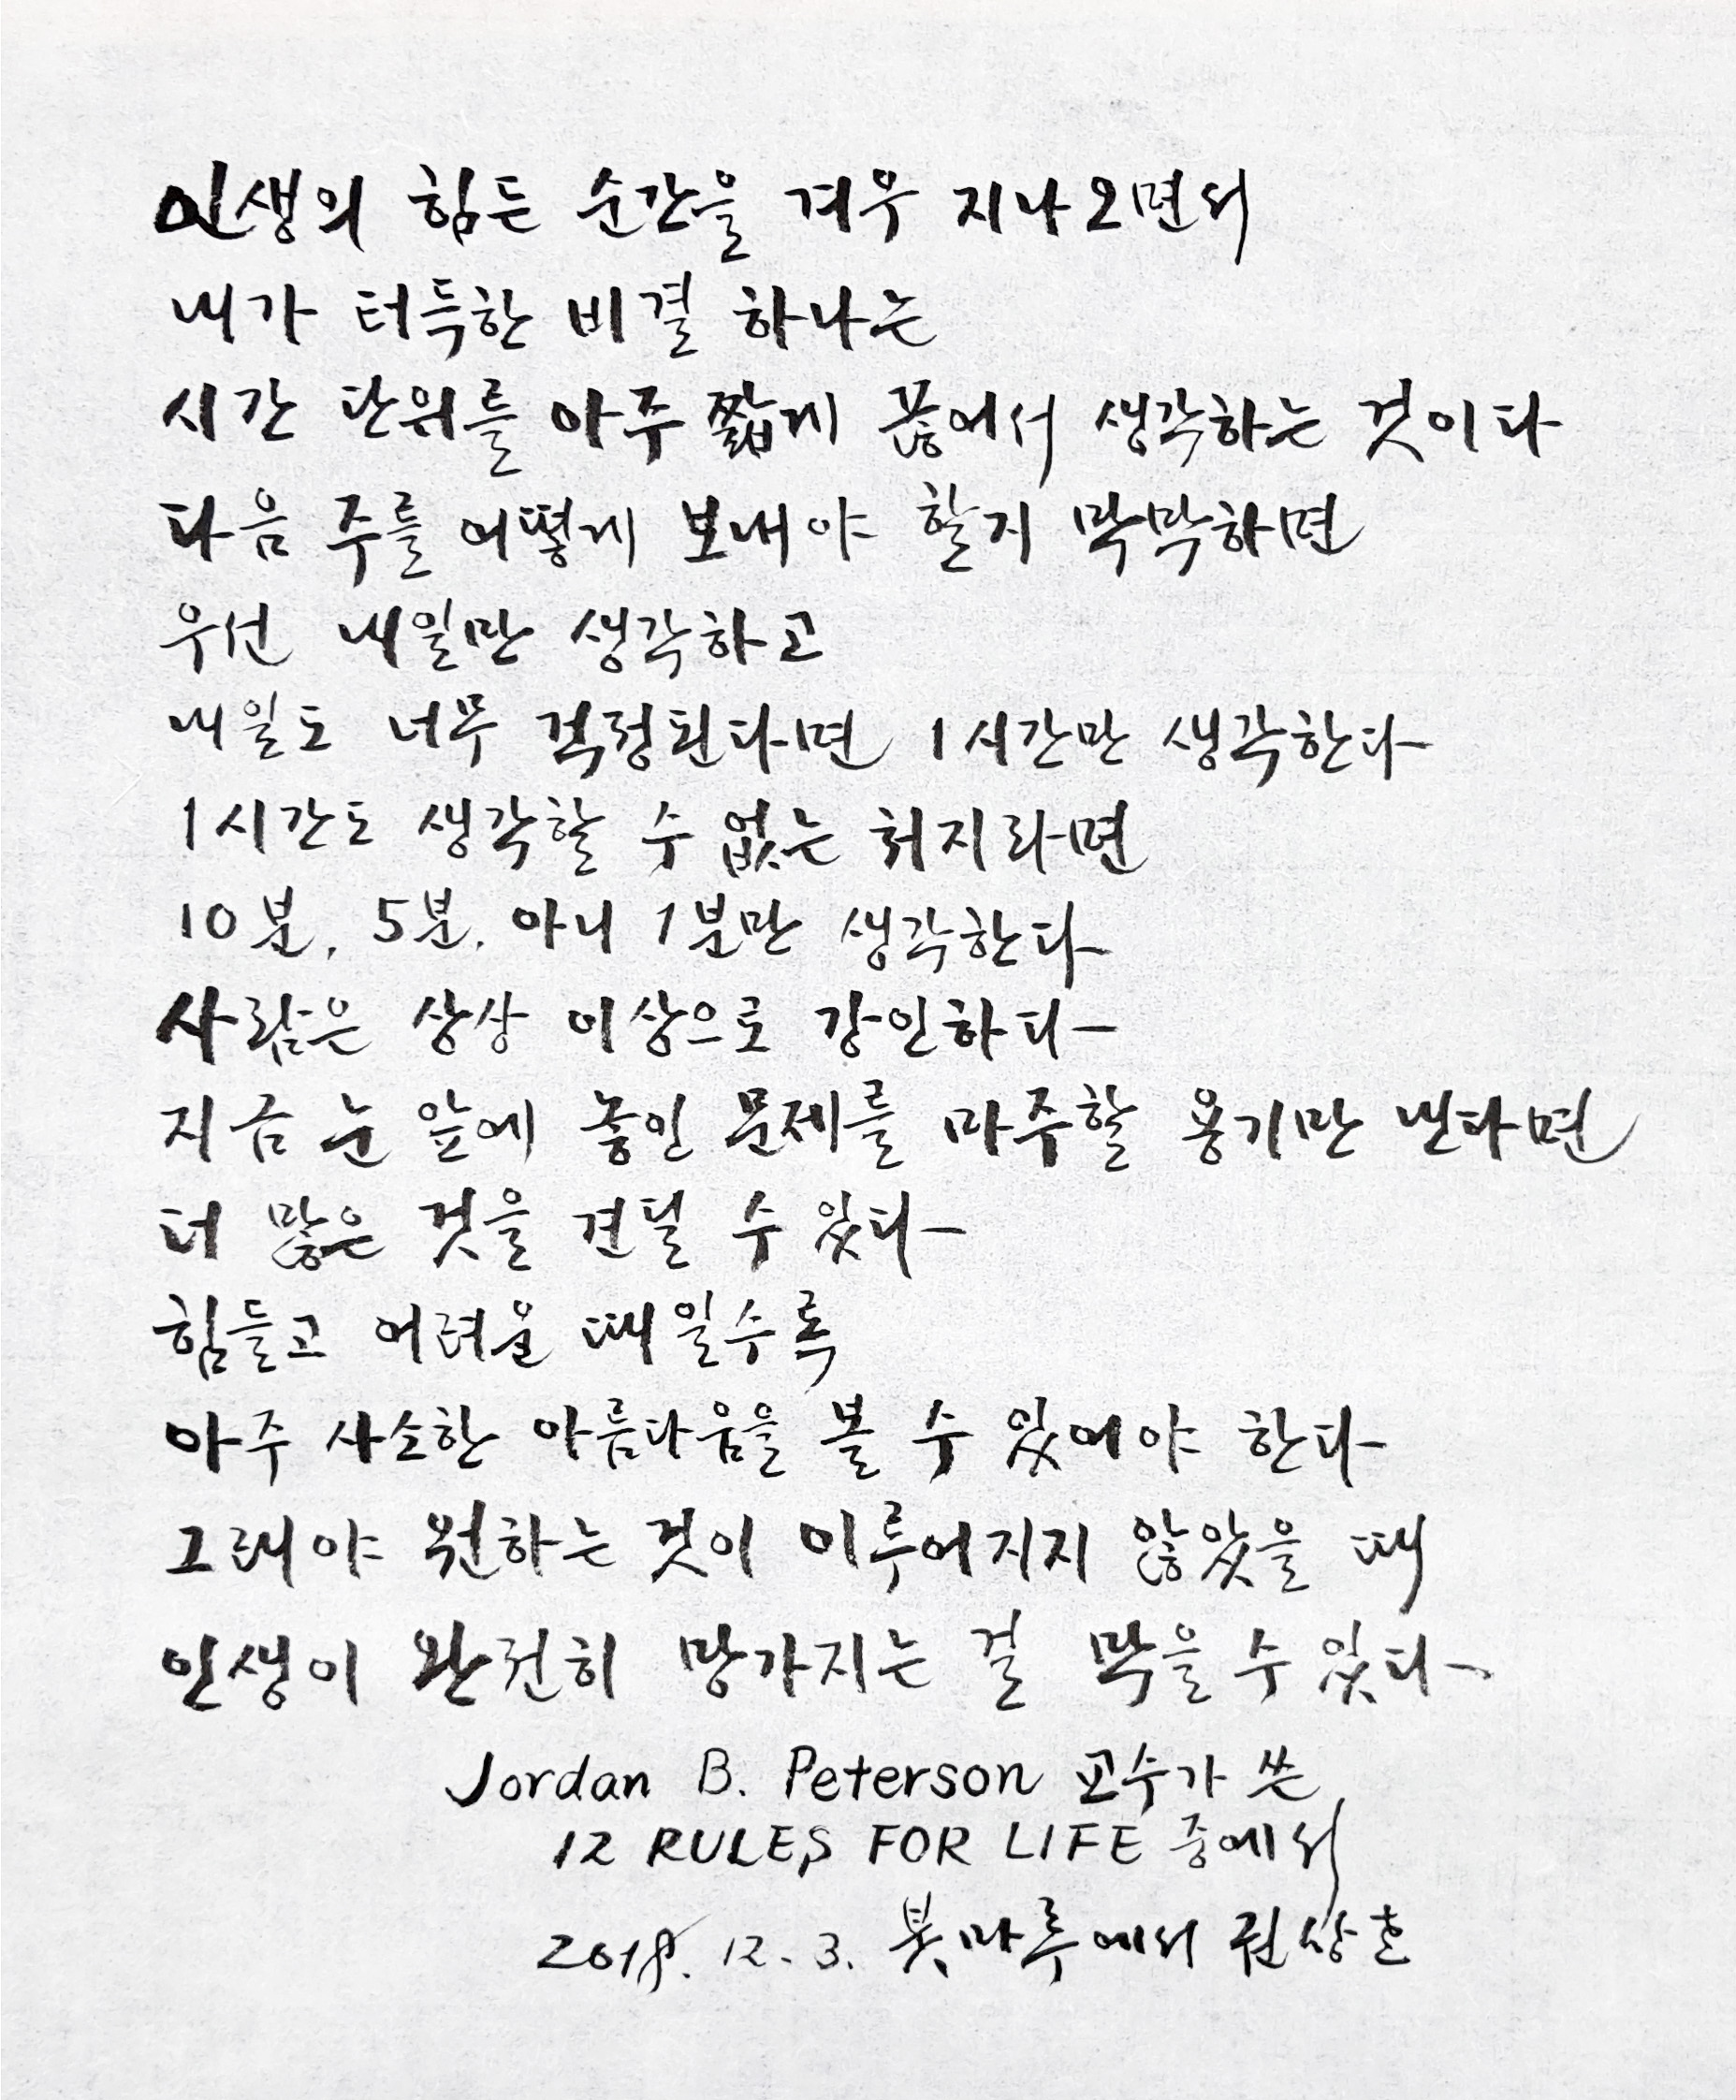 인생의 힘든 순간을 겨우 지나오면서
내가 터득한 비결 하나는
시간 단위를 아주 짧게 끊어서 생각하는 것이다
다음 주를 어떻게 보내야 할지 막막하면
우선 내일만 생각하고
내일도 너무 걱정된다면 1시간만 생각한다
1시간도 생각할 수 없는 처지라면
10분, 5분, 아니 1분만 생각한다
사람은 상상 이상으로 강인하다
지금 눈 앞에 놓인 문제를 마주할 용기만 낸다면
더 많은 것을 견딜 수 있다
힘들고 어려울 때일수록
아주 사소한 아름다움을 볼 수 있어야 한다
그래야 원하는 것이 이루어지지 않았을 때
인생이 완전히 망가지는 걸 막을 수 있다
Jordan B. Peterson 교수가 쓴
12 RULES FOR LIFE 중에서
2018. 12. 3. 붓마루에서 권상호